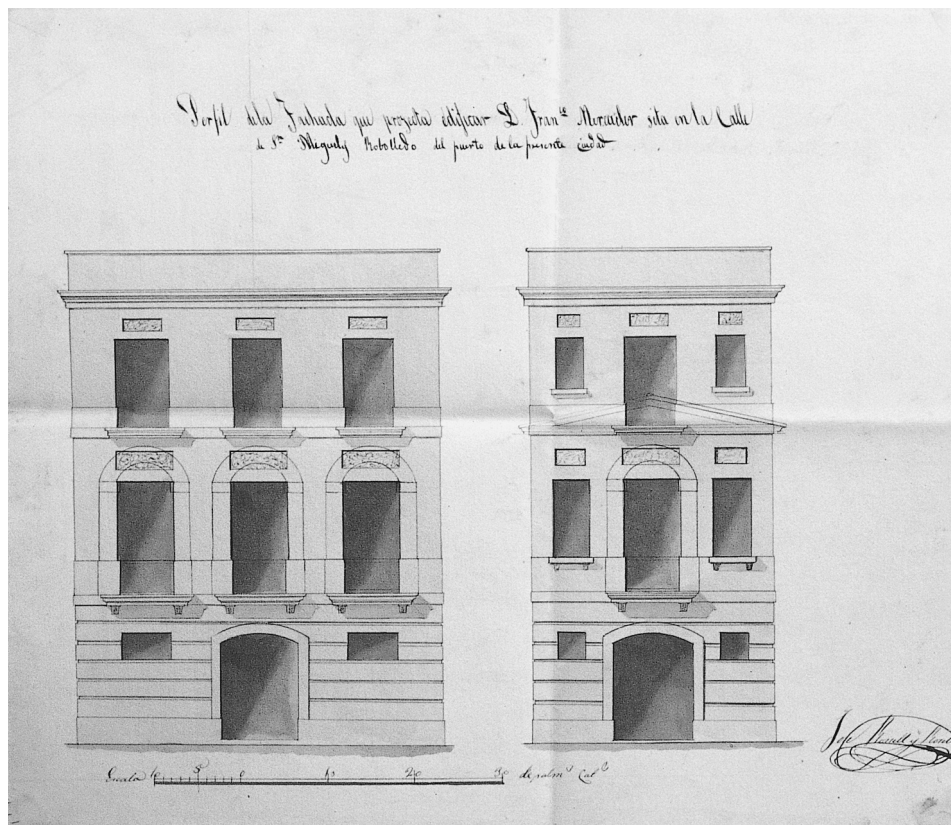 Perfil dela Fachada que proyecta edificar D. Fran.co Mercader sita en la Calle
de S.n Miguel y Rebolledo del puerto de la presente ciudad
Escala 10 5 0 10 20 30 de palm.s Cat.s
Jose